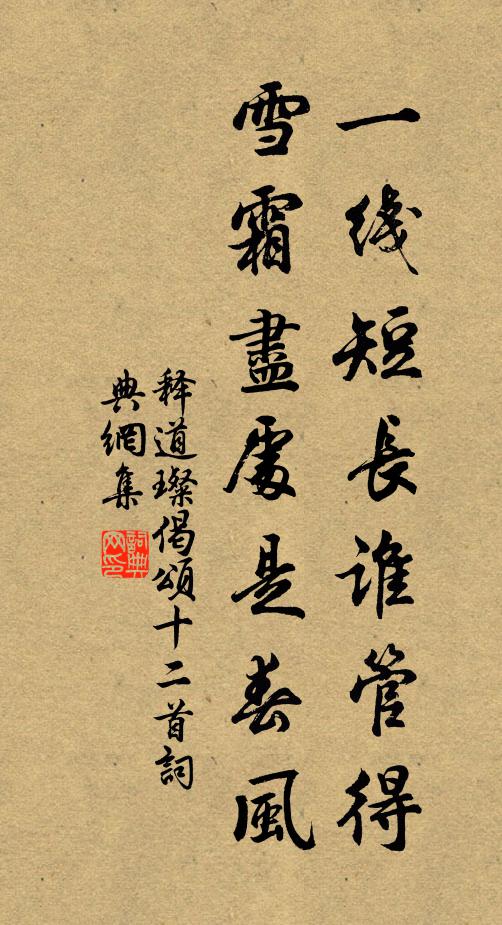 一綫短長誰管得
雪霜盡處是春風
释道璨偈頌十二首詞
典網集
詞典
网印